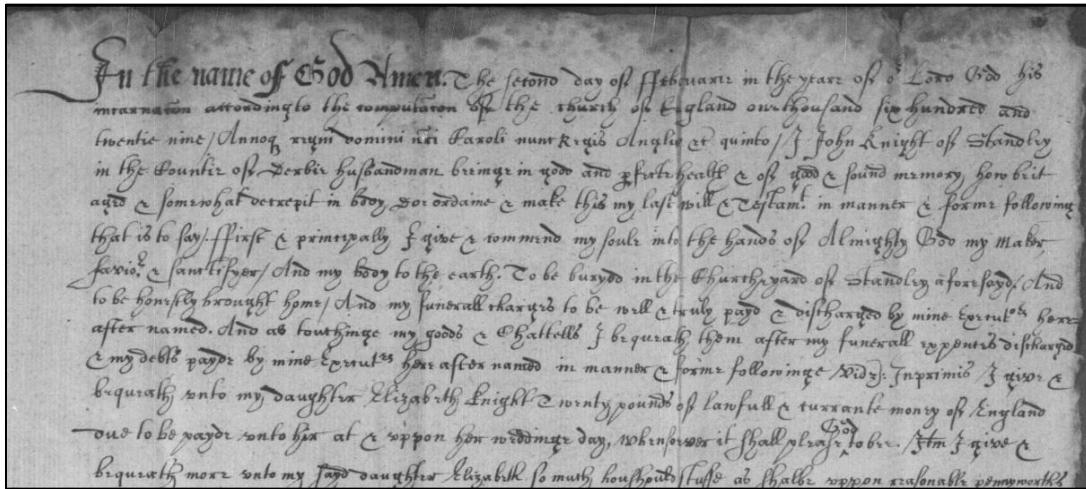 In the name of God Amen. The second day of ffebruarie in the yeare of or Lord God his
incarnacon according to the computacon of the church of England one thousand six hundred and
twentie nine / Annoq regni domini nri Caroli nunc Regis Anglie &c quinto / I John Knight of Standley
in the Countie of Derbie husbandman beinge in good and pfecte health & of good & sound memory, howbeit
aged & somewhat decrepit in body doe ordaine & make this my last will & Testamt. in manner & forme following
that is to say: ffirst & principally I give & commend my soule into the hands of Almighty God my Maker
savior. & sanctifyer / And my body to the earth. To be buryed in the Churchyard of Standley aforesayd. And
to be honestly brought home / And my funerall charges to be well & truly payd & discharged by mine Executors here-
after named. And as touchinge my goods & Chattells I bequeath them after my funerall expences discharged
& my debts payde by mine Executrs here after named in manner & forme followinge / vidz: Inprimis / I give &
bequeath unto my daughter Elizabeth Knight Twenty pounds of lawfull & currante money of England
due to be payde unto her at & uppon her weddinge day, whensoever it shall please God to bee. / Itm I give &
bequeath more unto my sayd daughter Elizabeth so much houshould stuffe as shalbe uppon reasonable pennyworthes